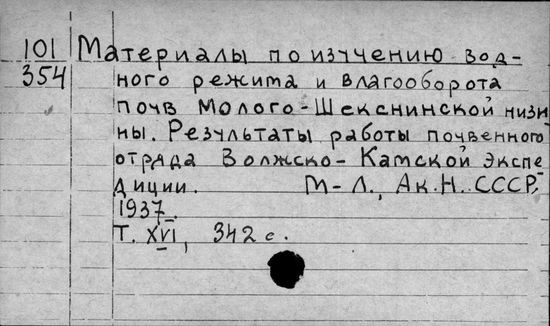 101
354
Материалы по изучению вод-
ного режима и влагооборота
почв Молого-Шекснинской низи
ны. Результаты работы почвенного
отряда Волжско-Камской Экспе-
диции. М-Л., Ак.Н. СССР,
1937.
Т. XVI, 342 с.